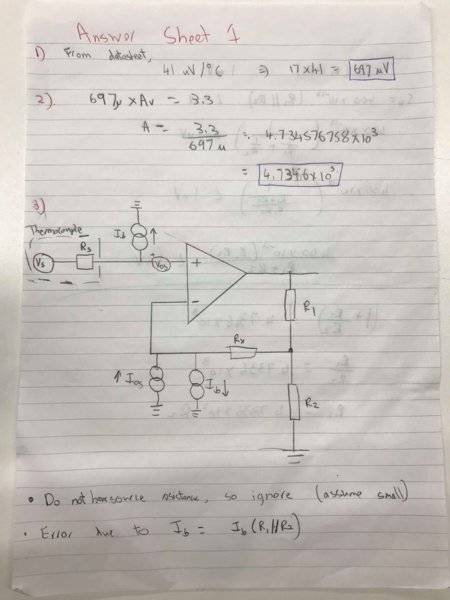 Answer Sheet 1
1) From datasheet,
41 uV/°C ⇒ 17 x 41 = 697 μV
2). 697μ x Av = 3.3
A = 3.3 / 697 μ = 4.734576758 x 10³
= 4.7346 x 10³
3)
Thermocouple
Rs
Ib
Vs
Vos
+
-
R1
Rx
Ios
Ib
R2
• Do not have source resistance, so ignore (assume small)
• Error due to Ib = Ib (R1 || R2)